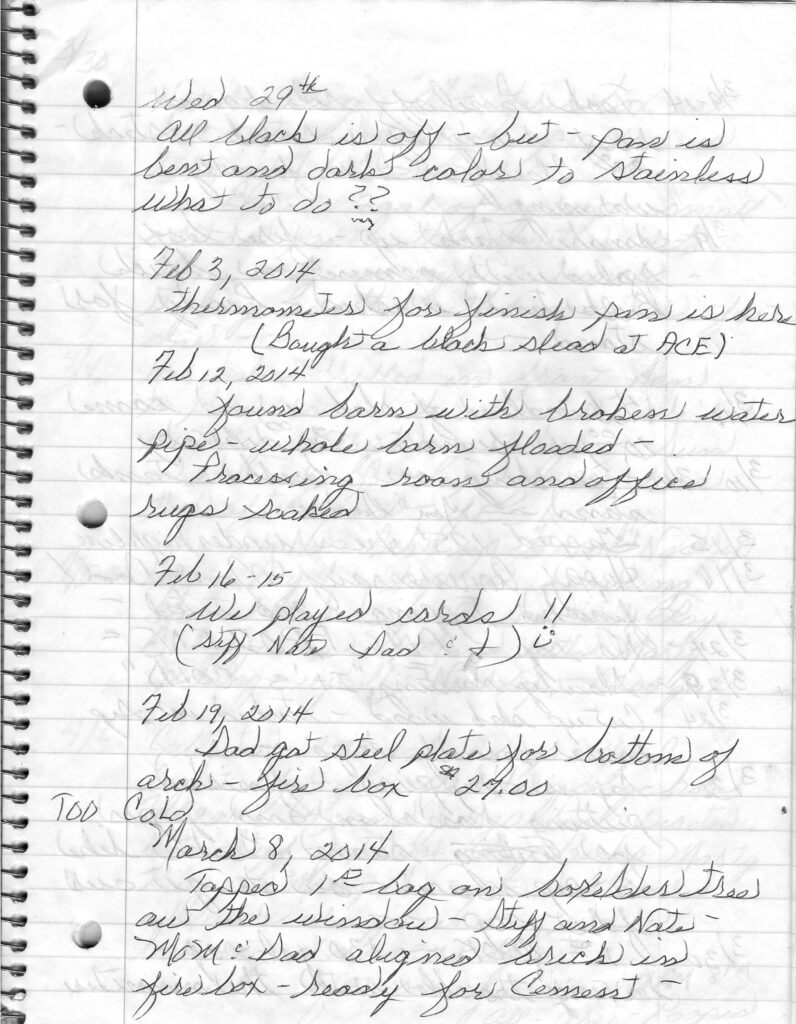 Wed 29th
All black is off - but - pan is
bent and dark color to stainless
what to do ??
Feb 3, 2014
thermometer for finish pan is here
(Bought a black slead at ACE)
Feb 12, 2014
found barn with broken water
pipe - whole barn flooded -
Processing room and office
rugs soaked
Feb 16-15
We played cards !!
(Stff Nate Dad & I)
Feb 19, 2014
Dad got steel plate for bottom of
arch - fire box $27.00
TOO COLD
March 8, 2014
Tapped 1st bag on boxelder tree
out the window - Stff and Nate -
MOM & Dad aligned brick in
fire box - ready for Cement -